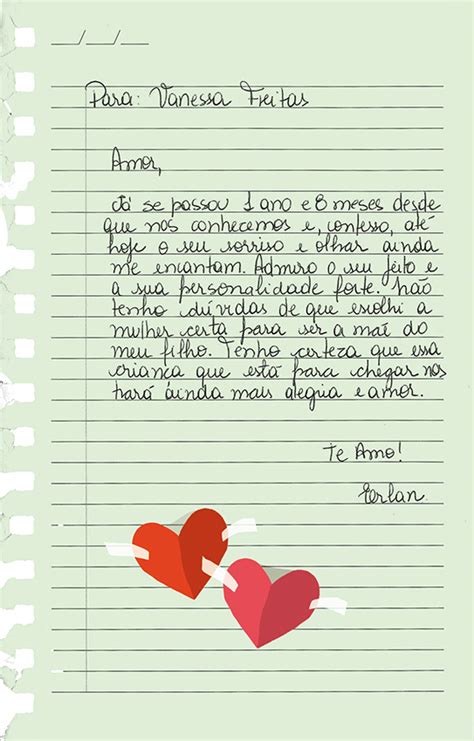 __/__/__
Para: Vanessa Freitas
Amor,
Já se passou 1 ano e 8 meses desde
que nos conhecemos e, confesso, até
hoje o seu sorriso e olhar ainda
me encantam. Admiro o seu jeito e
a sua personalidade forte. Não
tenho dúvidas de que escolhi a
mulher certa para ser a mãe do
meu filho. Tenho certeza que essa
criança que está para chegar nos
trará ainda mais alegria e amor.
Te Amo!
Erlan